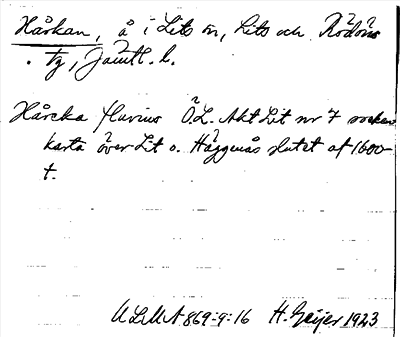 Hårkan, å i Lits sn, Lits och Rödöns
tg, Jämtl. l.
Hårcka fluvius Ö.L. Akt Lit nr 7 socken
karta över Lit o. Häggenås slutet af 1600-
t.
ULMA 869:9:16 H. Geijer 1923